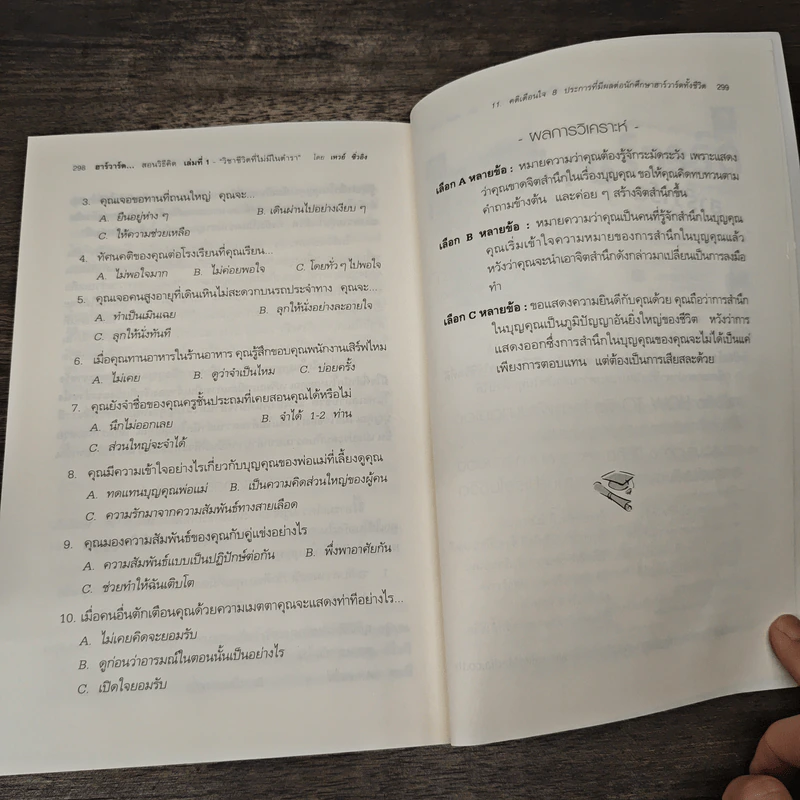 298 ฮาร์วาร์ด... สอนวิธีคิด เล่มที่ 1 - "วิชาชีวิตที่ไม่มีในตำรา" โดย เหวย์ ซิ่วอิง
3. คุณเจอขอทานที่ถนนใหญ่ คุณจะ...
A. ยืนอยู่ห่าง ๆ B. เดินผ่านไปอย่างเงียบ ๆ
C. ให้ความช่วยเหลือ
4. ทัศนคติของคุณต่อโรงเรียนที่คุณเรียน...
A. ไม่พอใจมาก B. ไม่ค่อยพอใจ C. โดยทั่วๆ ไปพอใจ
5. คุณเจอคนสูงอายุที่เดินเหินไม่สะดวกบนรถประจำทาง คุณจะ...
A. ทำเป็นเมินเฉย B. ลุกให้นั่งอย่างละอายใจ
C. ลุกให้นั่งทันที
6. เมื่อคุณทานอาหารในร้านอาหาร คุณรู้สึกขอบคุณพนักงานเสิร์ฟไหม
A. ไม่เคย B. ดูว่าจำเป็นไหม C. บ่อยครั้ง
7. คุณยังจำชื่อของคุณครูชั้นประถมที่เคยสอนคุณได้หรือไม่
A. นึกไม่ออกเลย B. จำได้ 1-2 ท่าน
C. ส่วนใหญ่จะจำได้
8. คุณมีความเข้าใจอย่างไรเกี่ยวกับบุญคุณของพ่อแม่ที่เลี้ยงดูคุณ
A. ทดแทนบุญคุณพ่อแม่ B. เป็นความคิดส่วนใหญ่ของผู้คน
C. ความรักมาจากความสัมพันธ์ทางสายเลือด
9. คุณมองความสัมพันธ์ของคุณกับคู่แข่งอย่างไร
A. ความสัมพันธ์แบบเป็นปฏิปักษ์ต่อกัน B. พึ่งพาอาศัยกัน
C. ช่วยทำให้ฉันเติบโต
10. เมื่อคนอื่นตักเตือนคุณด้วยความเมตตาคุณจะแสดงท่าทีอย่างไร...
A. ไม่เคยคิดจะยอมรับ
B. ดูก่อนว่าอารมณ์ในตอนนั้นเป็นอย่างไร
C. เปิดใจยอมรับ
11 คติเตือนใจ 8 ประการที่มีผลต่อนักศึกษาฮาร์วาร์ดทั้งชีวิต 299
- ผลการวิเคราะห์ -
เลือก A หลายข้อ : หมายความว่าคุณต้องรู้จักระมัดระวัง เพราะแสดง
ว่าคุณขาดจิตสำนึกในเรื่องบุญคุณ ขอให้คุณคิดทบทวนตาม
คำถามข้างต้น และค่อย ๆ สร้างจิตสำนึกขึ้น
เลือก B หลายข้อ : หมายความว่าคุณเป็นคนที่รู้จักสำนึกในบุญคุณ
คุณเริ่มเข้าใจความหมายของการสำนึกในบุญคุณแล้ว
หวังว่าคุณจะนำเอาจิตสำนึกดังกล่าวมาเปลี่ยนเป็นการลงมือ
ทำ
เลือก C หลายข้อ : ขอแสดงความยินดีกับคุณด้วย คุณถือว่าการสำนึก
ในบุญคุณเป็นภูมิปัญญาอันยิ่งใหญ่ของชีวิต หวังว่าการ
แสดงออกซึ่งการสำนึกในบุญคุณของคุณจะไม่ได้เป็นแค่
เพียงการตอบแทน แต่ต้องเป็นการเสียสละด้วย